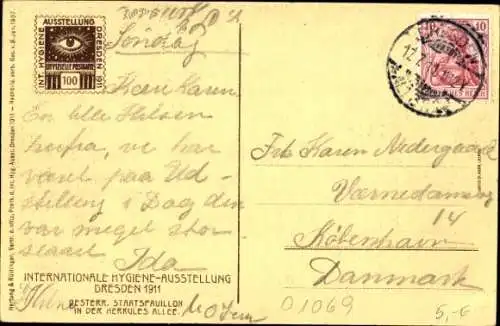 INT. HYGIENE
AUSSTELLUNG
DRESDEN 1911
OFFIZIELLE POSTKARTE
100
10
Søndag
Kære Karen
En lille Hilsen
herfra, vi har
været paa Ud-
stilling i Dag den
var meget stor-
slaaet
Ida
Frk Karen Nedergaard
Værnedamsvej
14
København
Danmark
INTERNATIONALE HYGIENE-AUSSTELLUNG
DRESDEN 1911
OESTERR. STAATSPAVILLON
IN DER HERKULES ALLEE.
01069
5,-€